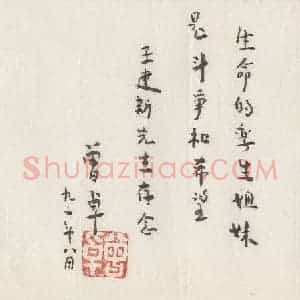 生命的孪生姐妹
是斗争和希望
王建新先生存念
曾卓
九一年八月
Shufaziliao.com